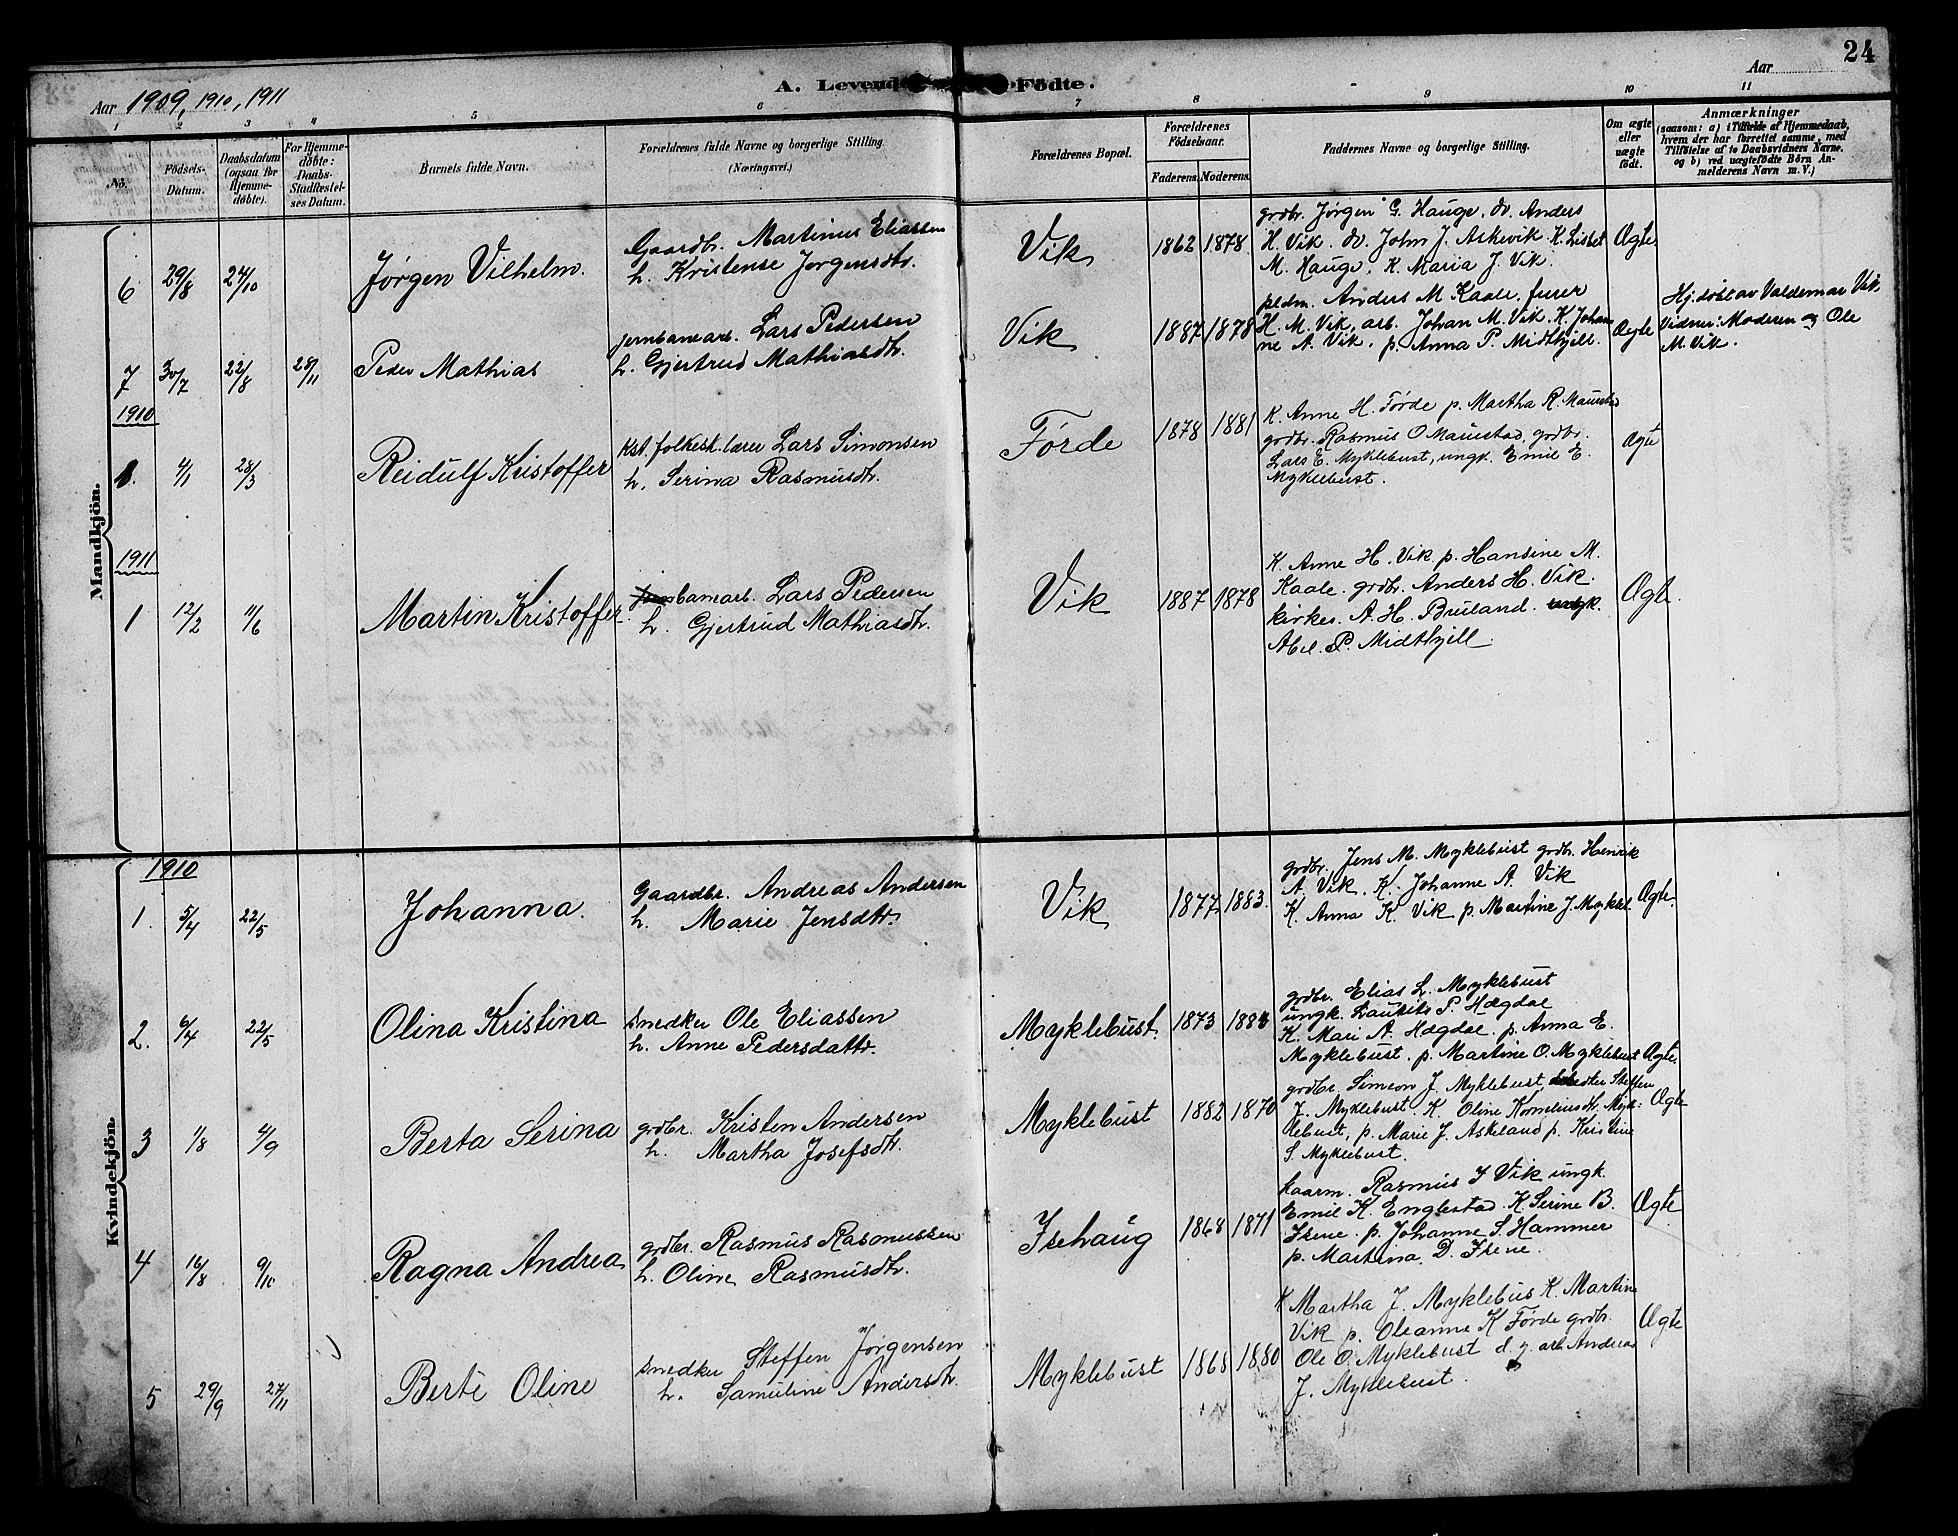 24
Aar 1909, 1910, 1911
A. Levende Fødte.
Aar
1 2 3 4 5 6 7 8 9 10 11
No. Födsels-Datum. Daabsdatum (ogsaa for Hjemme-døbte). For Hjemme-døbte: Daabs-Stadfæstel-ses Datum. Barnets fulde Navn. Forældrenes fulde Navne og borgerlige Stilling. (Næringsvei.) Forældrenes Bopæl. Forældrenes Fødselsaar. Faderens. Moderens. Faddernes Navne og borgerlige Stilling. Om ægte eller uægte født. Anmærkninger
(saasom: a) i Tilfælde af Hjemmedaab,
hvem der har forrettet samme, med
Tilføielse af to Daabsvidners Navne.
og b) ved uægtefødte Börn An-
melderens Navn m. V.)
Mandkjön.
6 29/8 24/10 Jørgen Vilhelm.
Gaardbr. Martinus Eliassen
h. Kristense Jørgensdtr.
Vik 1862 1878
grdbr. Jørgen G. Hauge, dv. Anders
H. Vik. dv. John J. Askevik K. Lisbet
M. Hauge, K. Maria J. Vik.
Ægte.
7 30/7 22/8 28/11 Peder Mathias
jernbanearb. Lars Pedersen
h. Gjertrud Mathiasdtr.
Vik 1887 1878
pldm. Anders M Kaale, furer
H. M. Vik, arb. Johan M. Vik. K. Johan
ne A. Vik. p. Anna P. Midthjell.
Ægte
Hj. døbt av Valdemar Vik,
Vidner: Moderen og Ole
M. Vik.
1910
1. 4/1 28/3 Reidulf Kristoffer
Kst. folkesk. lærer Lars Simonsen
h. Serina Rasmusdtr.
Førde 1878 1881
K. Anne H. Førde p. Martha R. Maurstad
grdbr. Rasmus O Maurstad, grdbr.
Lars E. Myklebust, ungk. Emil E.
Myklebust.
Ægte
1911
1 12/2 11/6 Martin Kristoffer
jernbanearb. Lars Pedersen
h. Gjertrud Mathiasdtr.
Vik 1887 1878
K. Anne H. Vik p. Hansine M.
Kaale. grdbr. Anders H. Vik.
kirkes. A. H. Breiland. ungk.
Abel. P. Midthjell.
Ægte.
Kvindekjön.
1910
1. 5/4 22/5 Johanna.
Gaardbr. Andreas Andersen
h. Marie Jensdtr.
Vik 1877 1883.
grdbr. Jens M. Myklebust grdbr. Henrik
A. Vik. K. Johanne A. Vik
K. Anna K. Vik p. Martine J. Mykleb.
Ægte.
2. 6/4 22/5 Olina Kristina
snedker Ole Eliassen
h. Anne Pedersdattr.
Myklebust. 1873
grdbr. Elias L. Myklebust
ungk. Laurits P. Hægdal
K. Mari A. Hægdal. p. Anna E.
Myklebust. p. Martine O. Myklebust
Ægte.
3 1/8 4/9 Berta Serina
grdbr. Kristen Andersen
h. Martha Josefsdtr.
Myklebust 1882 1870
grdbr. Simeon J. Myklebust, Steffen
J. Myklebust. K. Oline Korneliusdtr. Myk-
lebust, p. Marie J. Askeland p. Kristine
S. Myklebust.
Ægte
4 16/8 9/10 Ragna Andrea
grdbr. Rasmus Rasmussen
h. Oline Rasmusdtr.
Isehaug 1868 1871
kaarm. Rasmus I Vik ungk.
Emil K. Englestad. K. Serine B.
Isene. p. Johanne S. Hammer
p. Martina. D. Isene.
Ægte
5 29/9 27/11 Berte Oline
snedker Steffen Jørgensen
h. Samueline Andersdtr.
Myklebust 1868 1880
K Martha J. Myklebus K. Martine
Vik p. Oleanne K Førde grdbr.
Ole O. Myklebust d. y. arb Andreas
J. Myklebust.
Ægte